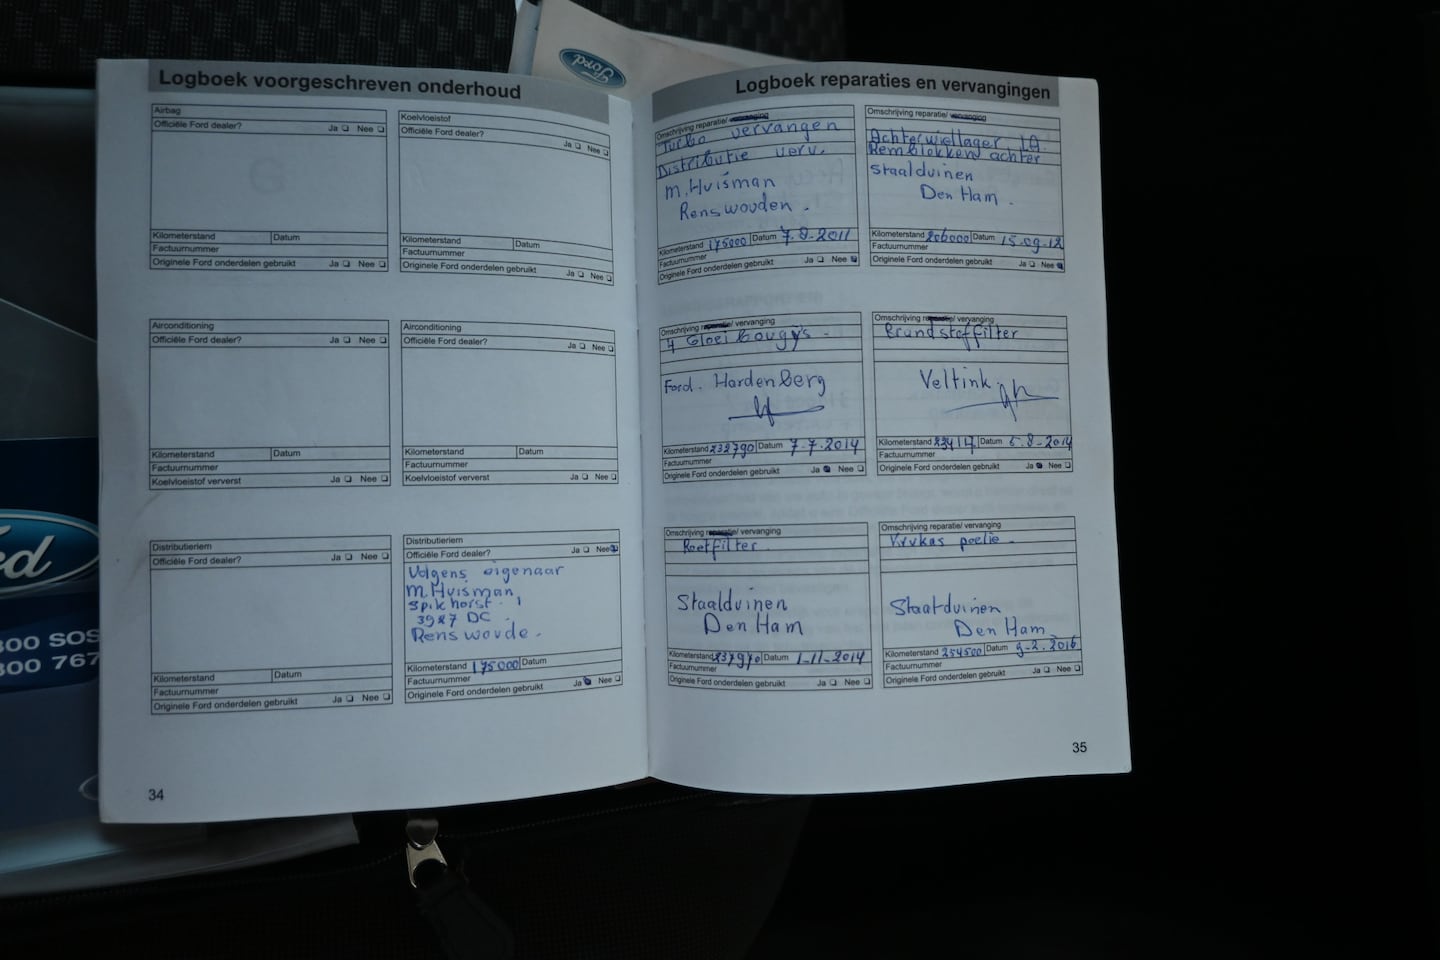 Ford
Ford
300 SOS
800 767
Logboek voorgeschreven onderhoud
Airbag
Officiële Ford dealer? Ja Nee
Kilometerstand Datum
Factuurnummer
Originele Ford onderdelen gebruikt Ja Nee
Koelvloeistof
Officiële Ford dealer?
Ja Nee
Kilometerstand Datum
Factuurnummer
Originele Ford onderdelen gebruikt Ja Nee
Airconditioning
Officiële Ford dealer? Ja Nee
Kilometerstand Datum
Factuurnummer
Koelvloeistof ververst Ja Nee
Airconditioning
Officiële Ford dealer? Ja Nee
Kilometerstand Datum
Factuurnummer
Koelvloeistof ververst Ja Nee
Distributieriem
Officiële Ford dealer? Ja Nee
Kilometerstand Datum
Factuurnummer
Originele Ford onderdelen gebruikt Ja Nee
Distributieriem
Officiële Ford dealer? Ja Nee
Volgens eigenaar
M.Huisman
Spikhorst 1
3927 DC
Renswoude.
Kilometerstand 175000 Datum
Factuurnummer
Originele Ford onderdelen gebruikt Ja Nee
34
Logboek reparaties en vervangingen
Omschrijving reparatie/ vervanging
Turbo vervangen
Distributie verv.
M.Huisman
Renswouden.
Kilometerstand 175000 Datum 7.8-2011
Factuurnummer
Originele Ford onderdelen gebruikt Ja Nee
Omschrijving reparatie/ vervanging
Achterwiellager LA.
Remblokken achter
Staalduinen
Den Ham.
Kilometerstand 206000 Datum 15-09-12
Factuurnummer
Originele Ford onderdelen gebruikt Ja Nee
Omschrijving reparatie/ vervanging
4 Gloei Bougy's
Ford. Hardenberg
Kilometerstand 232790 Datum 7-7-2014
Factuurnummer
Originele Ford onderdelen gebruikt Ja Nee
Omschrijving reparatie/ vervanging
Brundstoffilter
Veltink
Kilometerstand Datum 5-8-2014
Factuurnummer
Originele Ford onderdelen gebruikt Ja Nee
Omschrijving reparatie/ vervanging
Roetfilter
Staalduinen
Den Ham
Kilometerstand 237970 Datum 1-11-2014
Factuurnummer
Originele Ford onderdelen gebruikt Ja Nee
Omschrijving reparatie/ vervanging
Krukas poelie.
Staalduinen
Den Ham
Kilometerstand 254500 Datum 9-2.2016
Factuurnummer
Originele Ford onderdelen gebruikt Ja Nee
35